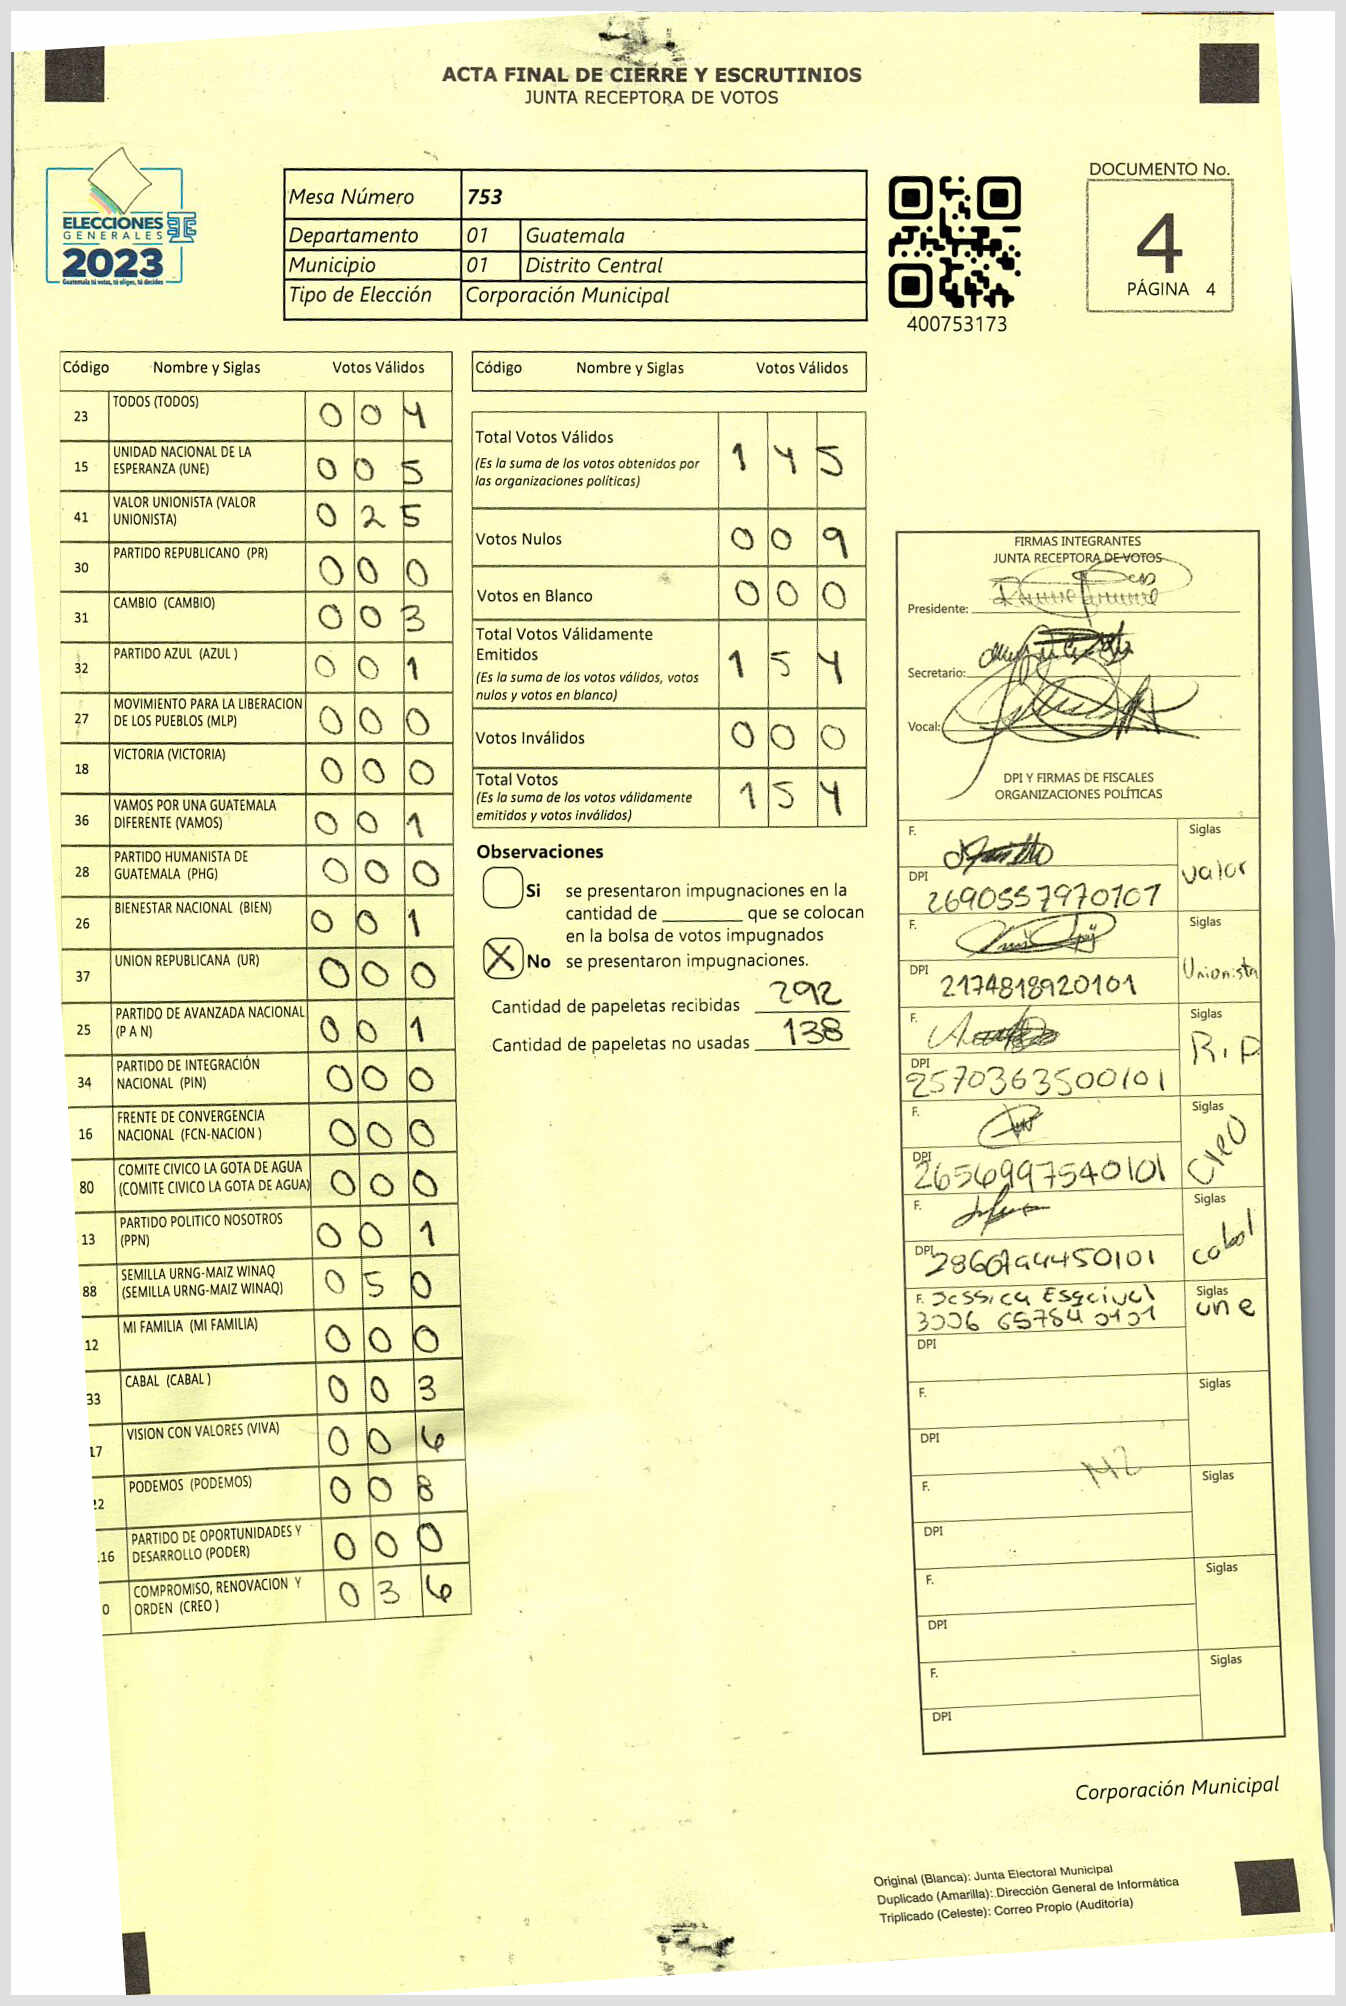 ACTA FINAL DE CIERRE Y ESCRUTINIOS
JUNTA RECEPTORA DE VOTOS
ELECCIONES
GENERALES
2023
Guatemala tú votas, tú eliges, tú decides
Mesa Número 753
Departamento 01 Guatemala
Municipio 01 Distrito Central
Tipo de Elección Corporación Municipal
400753173
DOCUMENTO No.
4
PÁGINA 4
Código Nombre y Siglas Votos Válidos
23 TODOS (TODOS) 0 0 4
15 UNIDAD NACIONAL DE LA
ESPERANZA (UNE) 0 0 5
41 VALOR UNIONISTA (VALOR
UNIONISTA) 0 2 5
30 PARTIDO REPUBLICANO (PR) 0 0 0
31 CAMBIO (CAMBIO) 0 0 3
32 PARTIDO AZUL (AZUL ) 0 0 1
27 MOVIMIENTO PARA LA LIBERACION
DE LOS PUEBLOS (MLP) 0 0 0
18 VICTORIA (VICTORIA) 0 0 0
36 VAMOS POR UNA GUATEMALA
DIFERENTE (VAMOS) 0 0 1
28 PARTIDO HUMANISTA DE
GUATEMALA (PHG) 0 0 0
26 BIENESTAR NACIONAL (BIEN) 0 0 1
37 UNION REPUBLICANA (UR) 0 0 0
25 PARTIDO DE AVANZADA NACIONAL
(P A N) 0 0 1
34 PARTIDO DE INTEGRACIÓN
NACIONAL (PIN) 0 0 0
16 FRENTE DE CONVERGENCIA
NACIONAL (FCN-NACION ) 0 0 0
80 COMITE CIVICO LA GOTA DE AGUA
(COMITE CIVICO LA GOTA DE AGUA) 0 0 0
13 PARTIDO POLITICO NOSOTROS
(PPN) 0 0 1
88 SEMILLA URNG-MAIZ WINAQ
(SEMILLA URNG-MAIZ WINAQ) 0 5 0
12 MI FAMILIA (MI FAMILIA) 0 0 0
33 CABAL (CABAL ) 0 0 3
17 VISION CON VALORES (VIVA) 0 0 6
22 PODEMOS (PODEMOS) 0 0 8
16 PARTIDO DE OPORTUNIDADES Y
DESARROLLO (PODER) 0 0 0
0 COMPROMISO, RENOVACION Y
ORDEN (CREO ) 0 3 6
Código Nombre y Siglas Votos Válidos
Total Votos Válidos 1 4 5
(Es la suma de los votos obtenidos por
las organizaciones políticas)
Votos Nulos 0 0 9
Votos en Blanco 0 0 0
Total Votos Válidamente
Emitidos 1 5 4
(Es la suma de los votos válidos, votos
nulos y votos en blanco)
Votos Inválidos 0 0 0
Total Votos 1 5 4
(Es la suma de los votos válidamente
emitidos y votos inválidos)
Observaciones
Si se presentaron impugnaciones en la
cantidad de ________ que se colocan
en la bolsa de votos impugnados
X No se presentaron impugnaciones.
Cantidad de papeletas recibidas 292
Cantidad de papeletas no usadas 138
FIRMAS INTEGRANTES
JUNTA RECEPTORA DE VOTOS
Presidente:
Secretario:
Vocal:
DPI Y FIRMAS DE FISCALES
ORGANIZACIONES POLÍTICAS
F. Siglas
valor
DPI 2690557970101
F. Siglas
Unionista
DPI 2174818920101
F. Siglas
R.P
DPI 2570363500101
F. Siglas
Creo
DPI 2656997540101
F. Siglas
cabal
DPI
F. Jessica Esquivel Siglas
3006 65784 0101 une
DPI
F. Siglas
DPI
F. Siglas
DPI
F. Siglas
DPI
F. Siglas
DPI
Corporación Municipal
Original (Blanca): Junta Electoral Municipal
Duplicado (Amarilla): Dirección General de Informática
Triplicado (Celeste): Correo Propio (Auditoría)